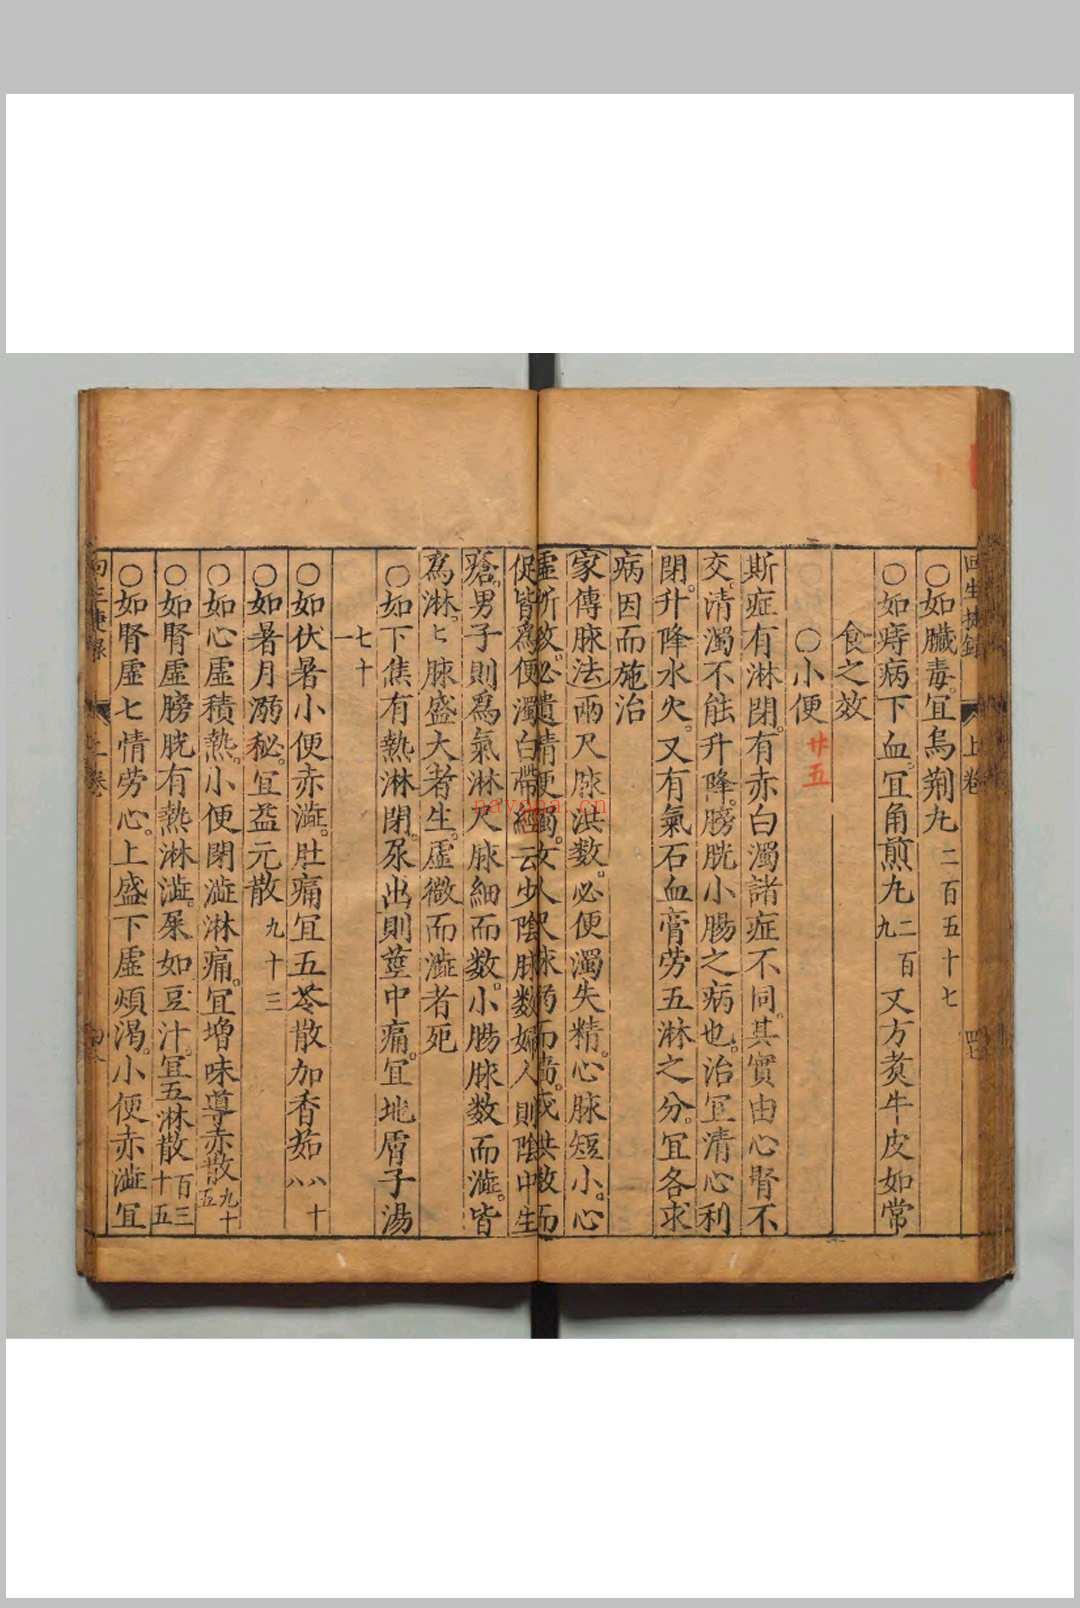 回生捷錄 上卷 四七
〇如臟毒。宜烏荆九 二百五十七
〇如痔病下血。宜角煎九 二百九 又方炙牛皮如常
食之效
〇小便 廿五
斯症有淋閉。有赤白濁諸症不同。其實由心腎不
交。清濁不能升降。膀胱小腸之病也。治宜清心利
閉。升降水火。又有氣石血膏勞五淋之分。宜各求
病因而施治
家傳脉法 兩尺脉洪數。必便濁失精。心脉短小。心
虛所致。必遺精便濁。女人尺脉 而 。或洪數而
促。皆爲便濁白帶。經云少陰脉數。婦人則陰中生
瘡。男子則爲氣淋。尺脉細而數。小腸脉數而澁。皆
爲淋。匕脉盛大者生。虛微而澁者死
〇如下焦有熱淋閉。尿出則莖中痛。宜地膚子湯
七十一
〇如伏暑小便赤澁。肚痛宜五苓散加香茹 八十八
〇如暑月溺秘。宜益元散 九十三
〇如心虛積熱。小便閉澁淋痛。宜增味導赤散 九十五
〇如腎虛膀胱有熱淋澁。屎如豆汁。宜五淋散 百三十五
〇如腎虛七情勞心。上盛下虛煩渴。小便赤澁宜
上卷
nayona.cn